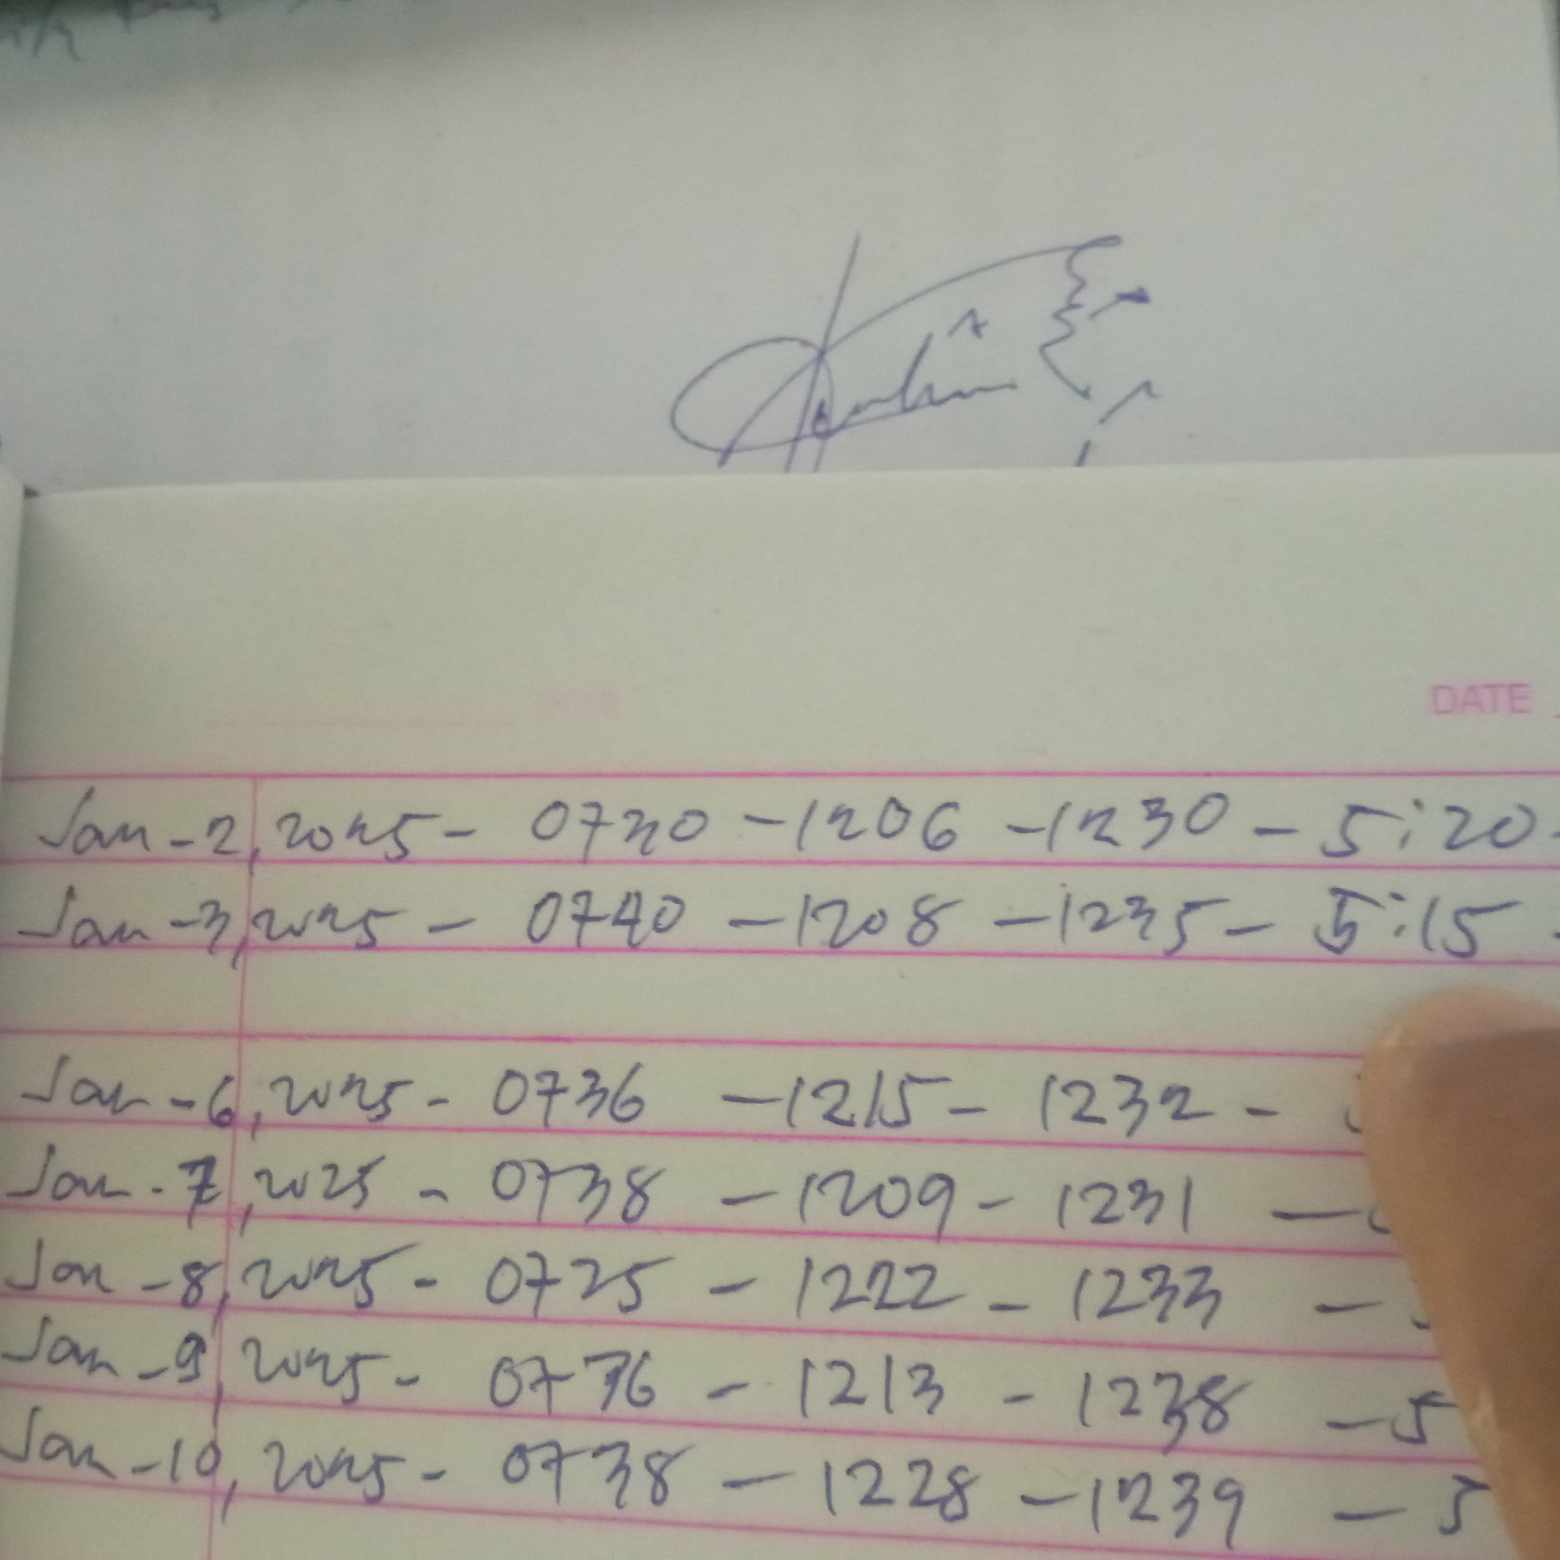 DATE
Jan-2, 2025 - 0730 - 1206 - 1230 - 5:20
Jan-3, 2025 - 0740 - 1208 - 1235 - 5:15
Jan-6, 2025 - 0736 - 1215 - 1232 -
Jan-7, 2025 - 0738 - 1209 - 1231 -
Jan-8, 2025 - 0725 - 1222 - 1233 -
Jan-9, 2025 - 0736 - 1213 - 1238 - 5
Jan-10, 2025 - 0738 - 1228 - 1239 - 5